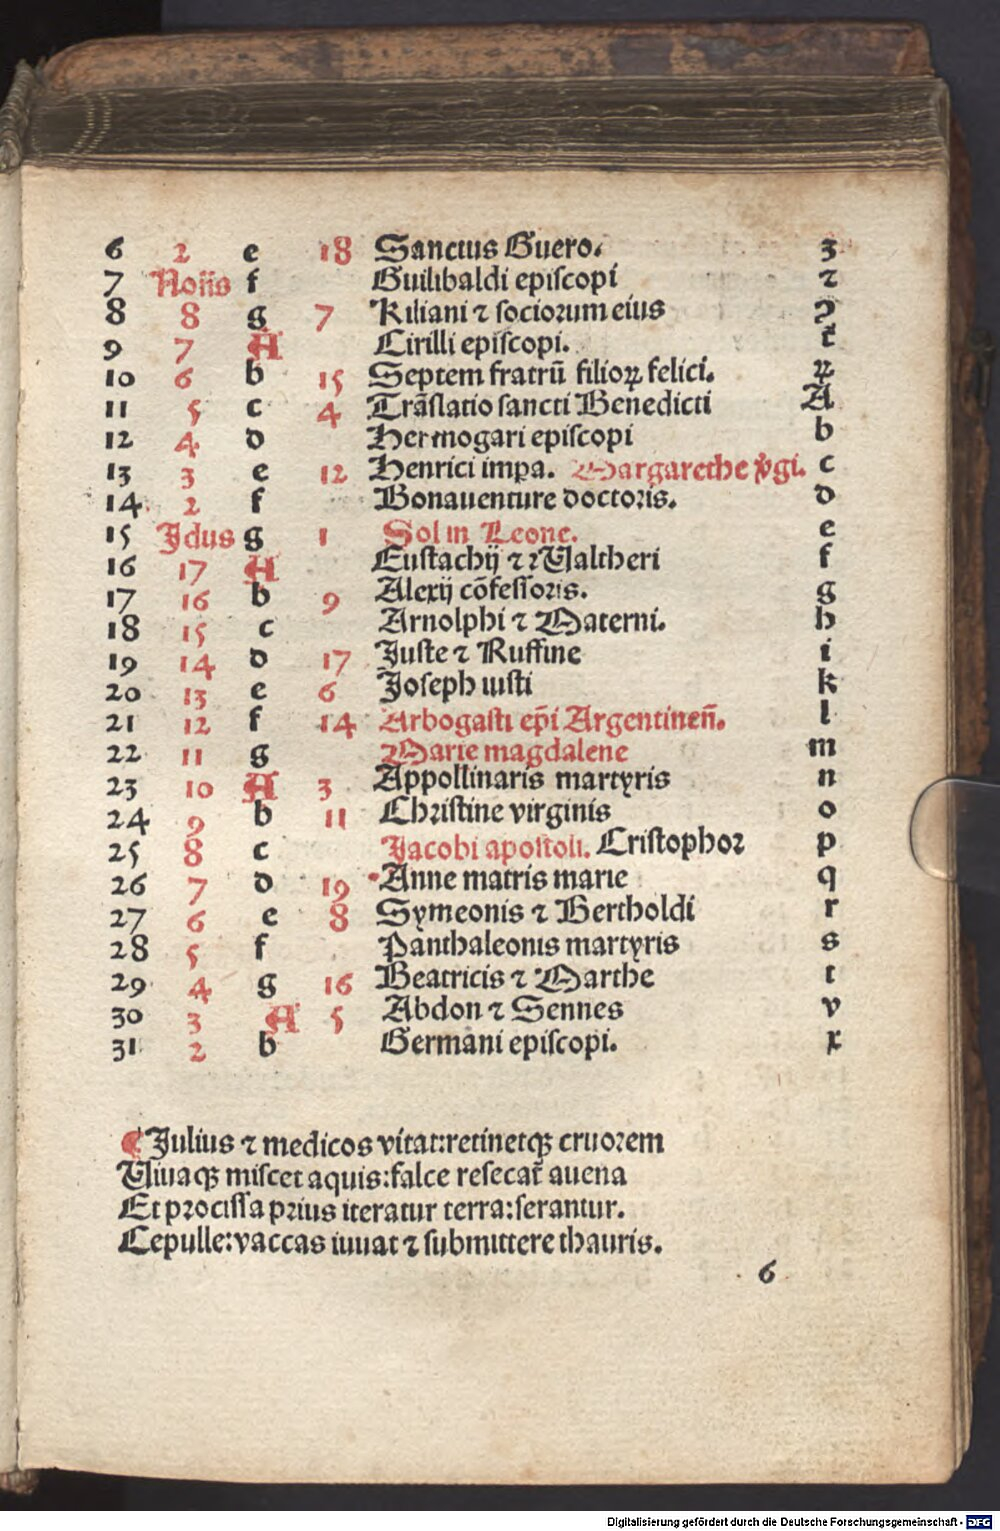 6 2 e 18 Sanctus Guero. z
7 Noiis f Guilibaldi episcopi ⁊
8 8 g 7 Kiliani ⁊ sociorum eius ꝯ
9 7 A Cirilli episcopi. t̄
10 6 b 15 Septem fratrū filioꝝ felici. ꝝ
11 5 c 4 Trāslatio sancti Benedicti A
12 4 d Hermogari episcopi b
13 3 e 12 Henrici impa. Margarethe v̄gi. c
14 2 f Bonauenture doctoris. d
15 Jdus g 1 Sol in Leone. e
16 17 A Eustachij ⁊ Waltheri f
17 16 b 9 Alexij cōfessoris. g
18 15 c Arnolphi ⁊ Materni. h
19 14 d 17 Juste ⁊ Ruffine i
20 13 e 6 Joseph iusti k
21 12 f 14 Arbogasti ep̄i Argentineñ. l
22 11 g Marie magdalene m
23 10 A 3 Appollinaris martyris n
24 9 b 11 Christine virginis o
25 8 c Jacobi apostoli. Cristophor p
26 7 d 19 Anne matris marie q
27 6 e 8 Symeonis ⁊ Bertholdi r
28 5 f Panthaleonis martyris s
29 4 g 16 Beatricis ⁊ Marthe t
30 3 A 5 Abdon ⁊ Sennes v
31 2 b Germani episcopi. x
¶ Julius ⁊ medicos vitat:retinetqꝫ cruorem
Uiuaqꝫ miscet aquis:falce resecat̄ auena
Et procissa prius iteratur terra:serantur.
Cepulle:vaccas iuuat ⁊ submittere thauris.
6
Digitalisierung gefördert durch die Deutsche Forschungsgemeinschaft - DFG